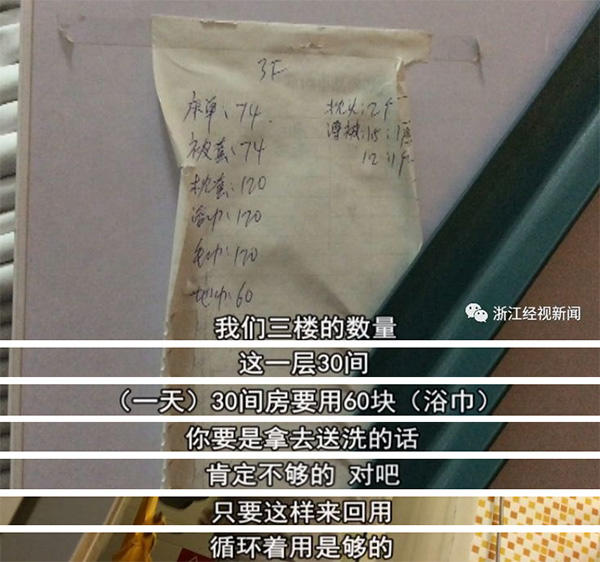 3F
床单:74
被套:74
枕套:120
浴巾:170
毛巾:170
地巾:60
枕头:2个
薄被:15:1床
浙江经视新闻
我们三楼的数量
这一层30间
（一天）30间房要用60块（浴巾）
你要是拿去送洗的话
肯定不够的 对吧
只要这样来回用
循环着用是够的